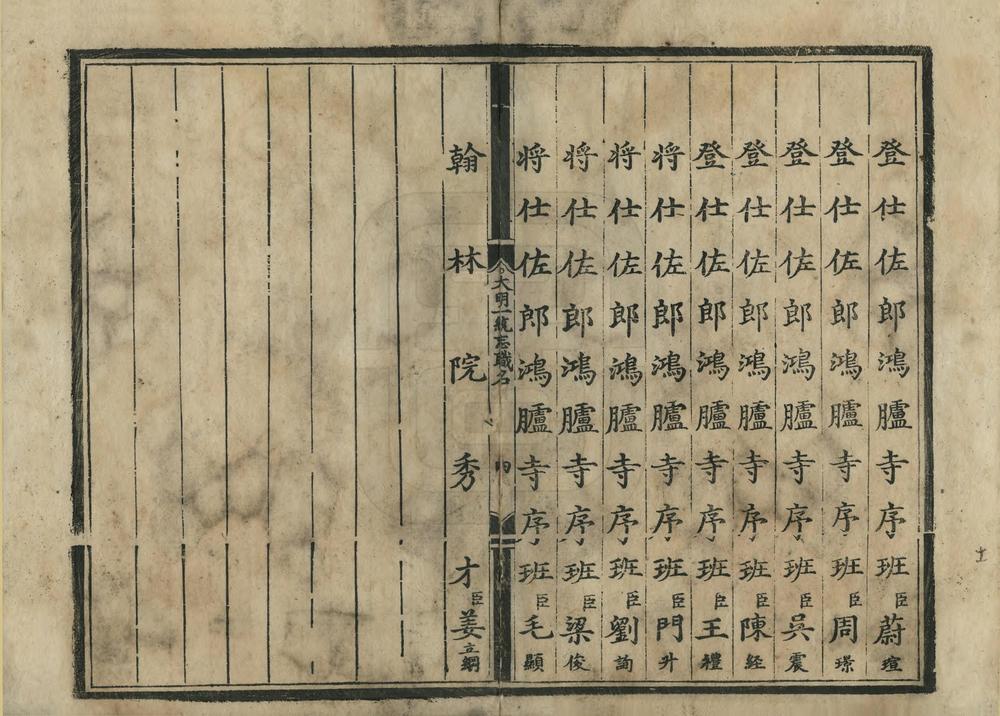 登仕佐郎鴻臚寺序班臣蔚瑄
登仕佐郎鴻臚寺序班臣周璟
登仕佐郎鴻臚寺序班臣吳震
登仕佐郎鴻臚寺序班臣陳経
登仕佐郎鴻臚寺序班臣王禮
将仕佐郎鴻臚寺序班臣門升
将仕佐郎鴻臚寺序班臣劉詢
将仕佐郎鴻臚寺序班臣梁俊
将仕佐郎鴻臚寺序班臣毛顯
大明一統志職名
翰林院秀才臣姜立綱